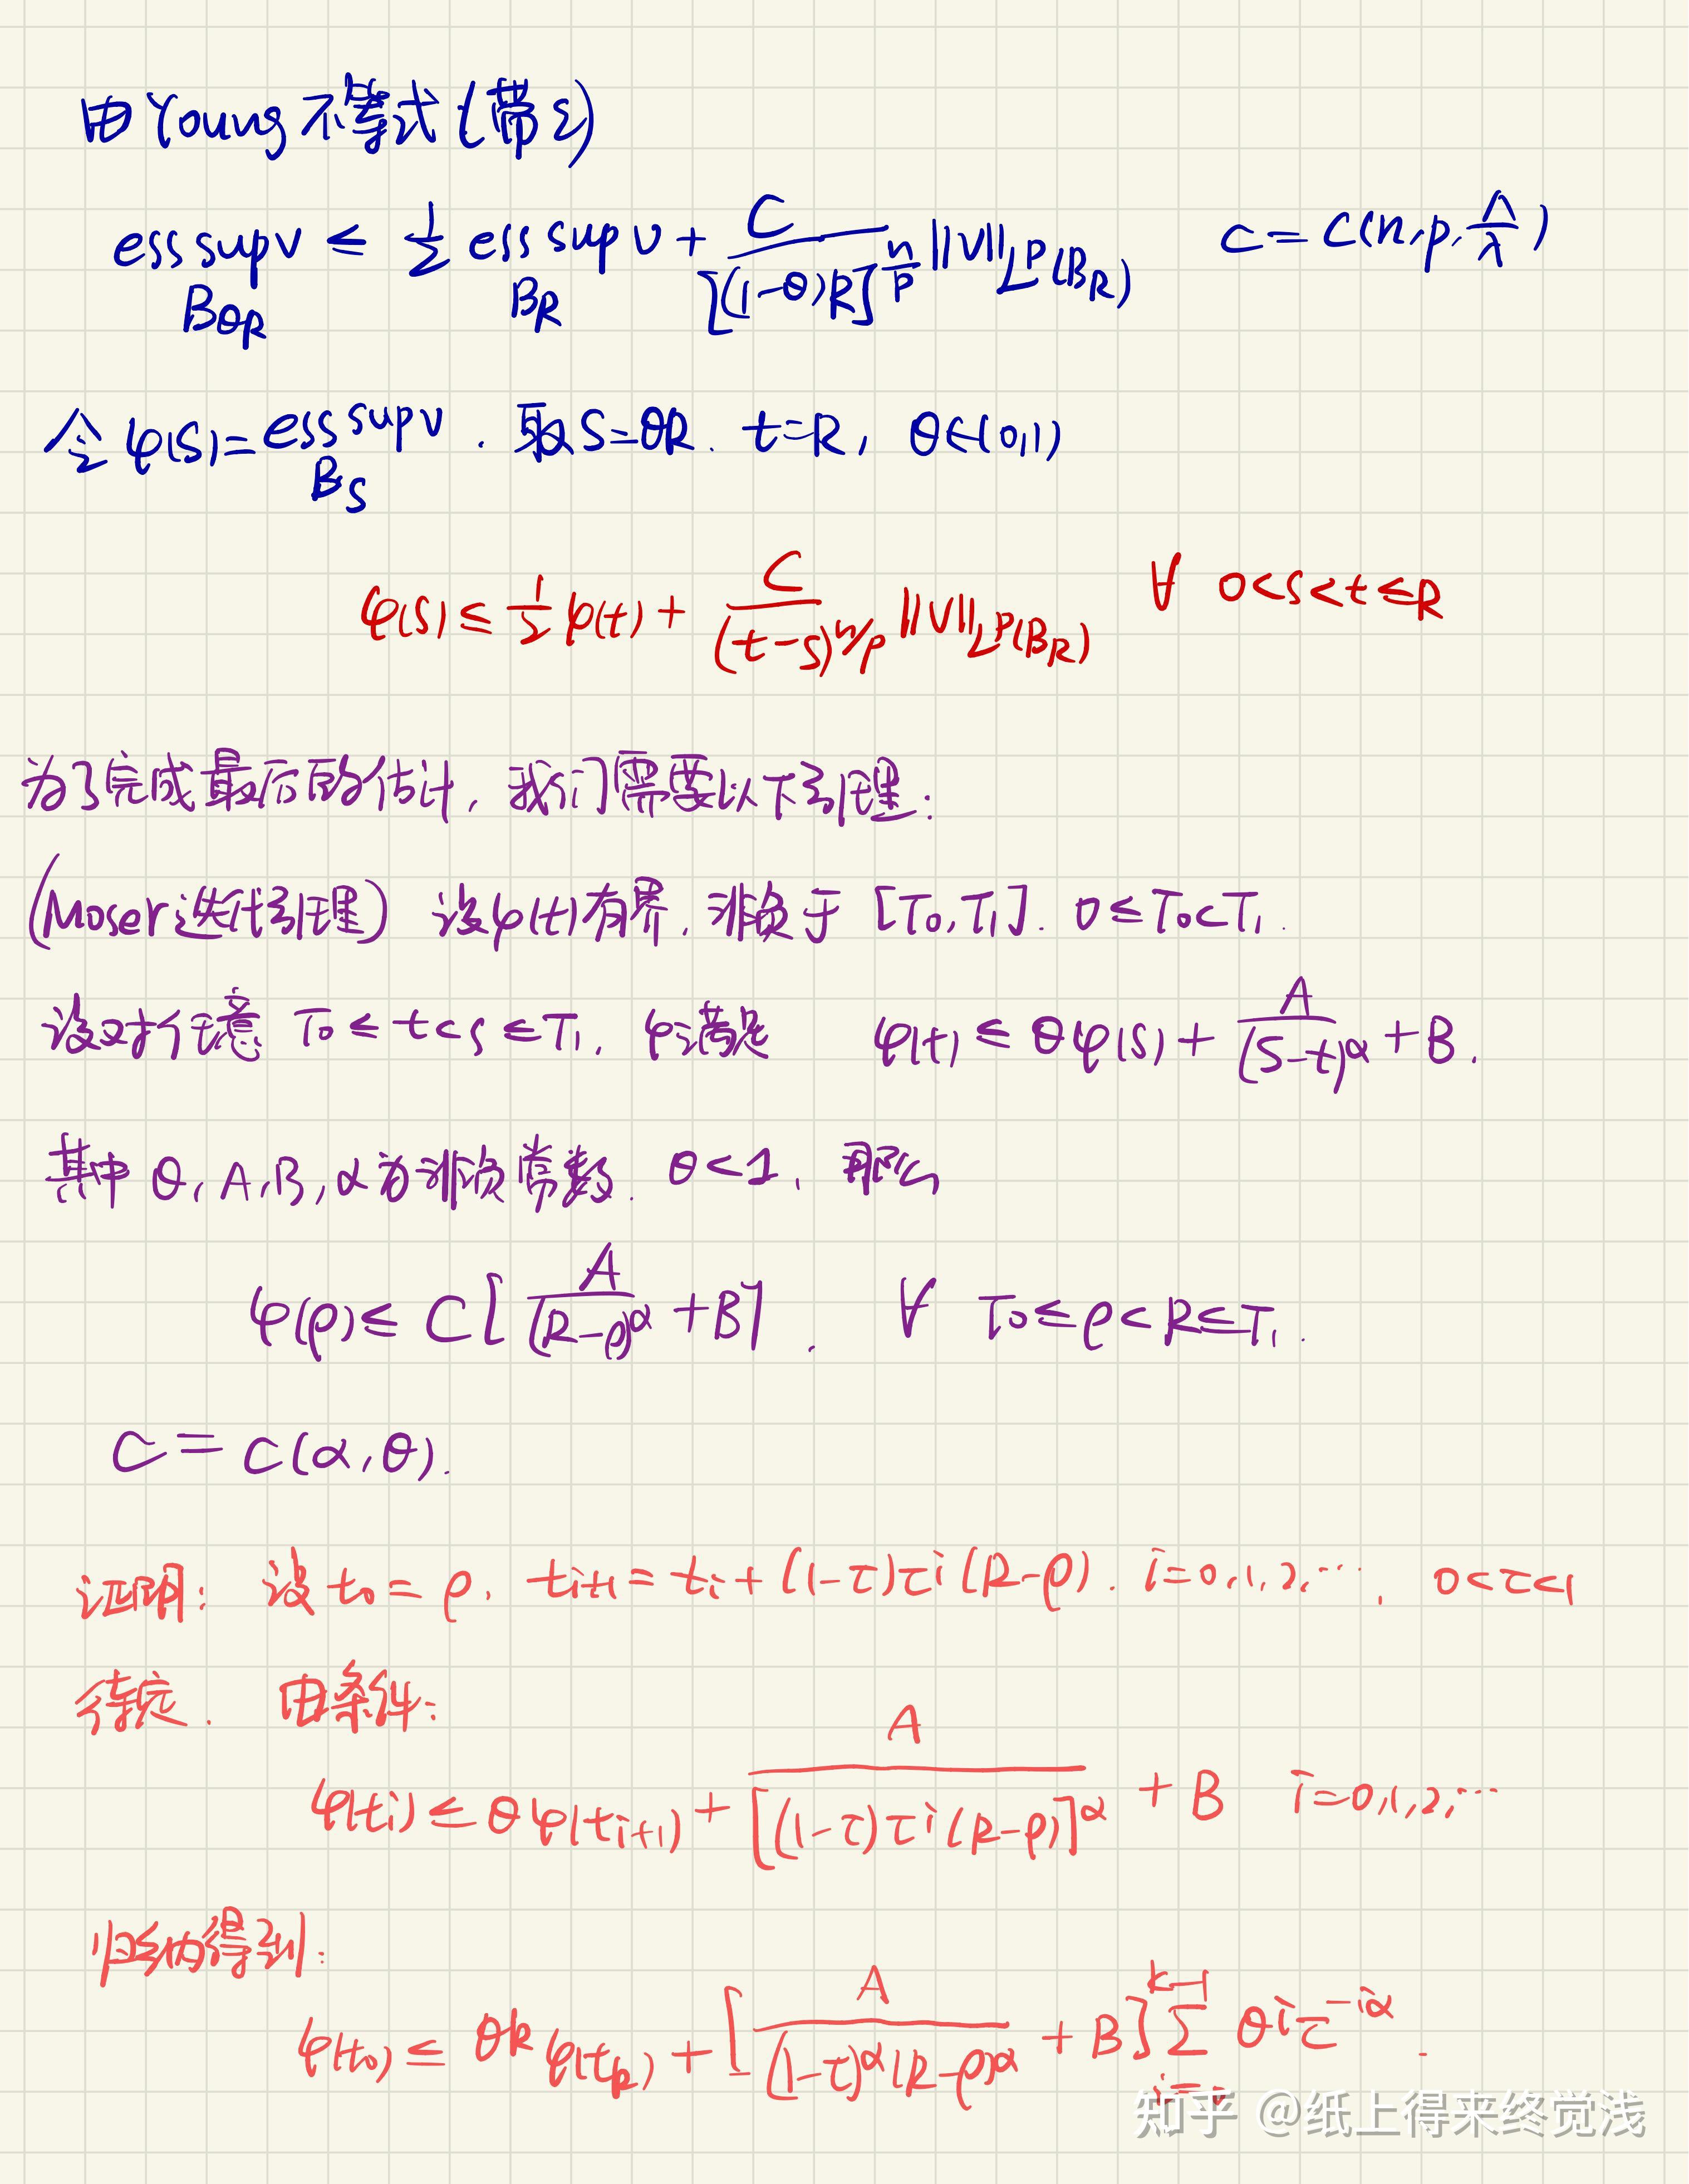 由Young不等式(带ε)
ess sup_{B_{θR}} v ≤ 1/2 ess sup_{B_R} v + C/[(1-θ)R]^{n/p} ||v||_{L^p(B_R)}  C = C(n, p, Λ/λ)
令 φ(s) = ess sup_{B_s} v. 取 s=θR. t=R, θ∈(0,1)
φ(s) ≤ 1/2 φ(t) + C/(t-s)^{n/p} ||v||_{L^p(B_R)}  ∀ 0<s<t≤R
为了完成最后的估计, 我们需要以下引理:
(Moser迭代引理) 设φ(t)有界, 非负于 [T₀, T₁]. 0≤T₀<T₁.
设对任意 T₀≤t<s≤T₁, φ满足 φ(t) ≤ θφ(s) + A/(s-t)^α + B.
其中 θ, A, B, α为非负常数. θ<1, 那么
φ(ρ) ≤ C[A/(R-ρ)^α + B]. ∀ T₀≤ρ<R≤T₁.
C = C(α, θ).
证明: 设 t₀=ρ, t_{i+1} = t_i + (1-τ)τ^i(R-ρ). i=0,1,2,…, 0<τ<1
待定. 由条件:
φ(t_i) ≤ θφ(t_{i+1}) + A/[(1-τ)τ^i(R-ρ)]^α + B  i=0,1,2,…
归纳得到:
φ(t₀) ≤ θ^k φ(t_k) + [A/((1-τ)^α(R-ρ)^α) + B] Σ_{i=0}^{k-1} θ^i τ^{-iα}.
知乎 @纸上得来终觉浅